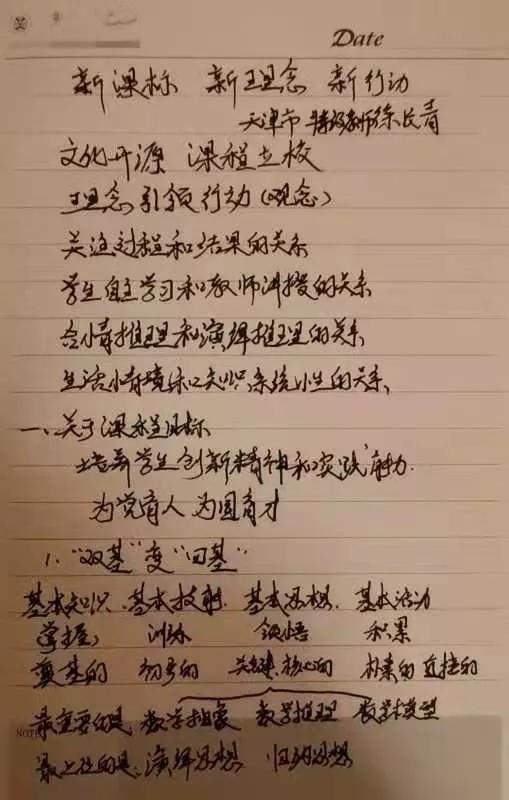 Date
新课标 新理念 新行动
天津市 特级教师徐长青
文化开源 课程立校
理念引领行动(观念)
关注过程和结果的关系
学生自主学习和教师讲授的关系
合情推理和演绎推理的关系
生活情境和知识系统性的关系
一、关于课程目标
培养学生创新精神和实践能力.
为党育人 为国育才
1. “双基”变“四基”
基本知识、基本技能、基本思想、基本活动
掌握 训练 领悟 积累
奠基的 初步的 关键、核心的 朴素的 直接的
最重要的是 数学抽象 数学推理 数学模型
NOTE
最上位的是: 演绎思想 归纳思想